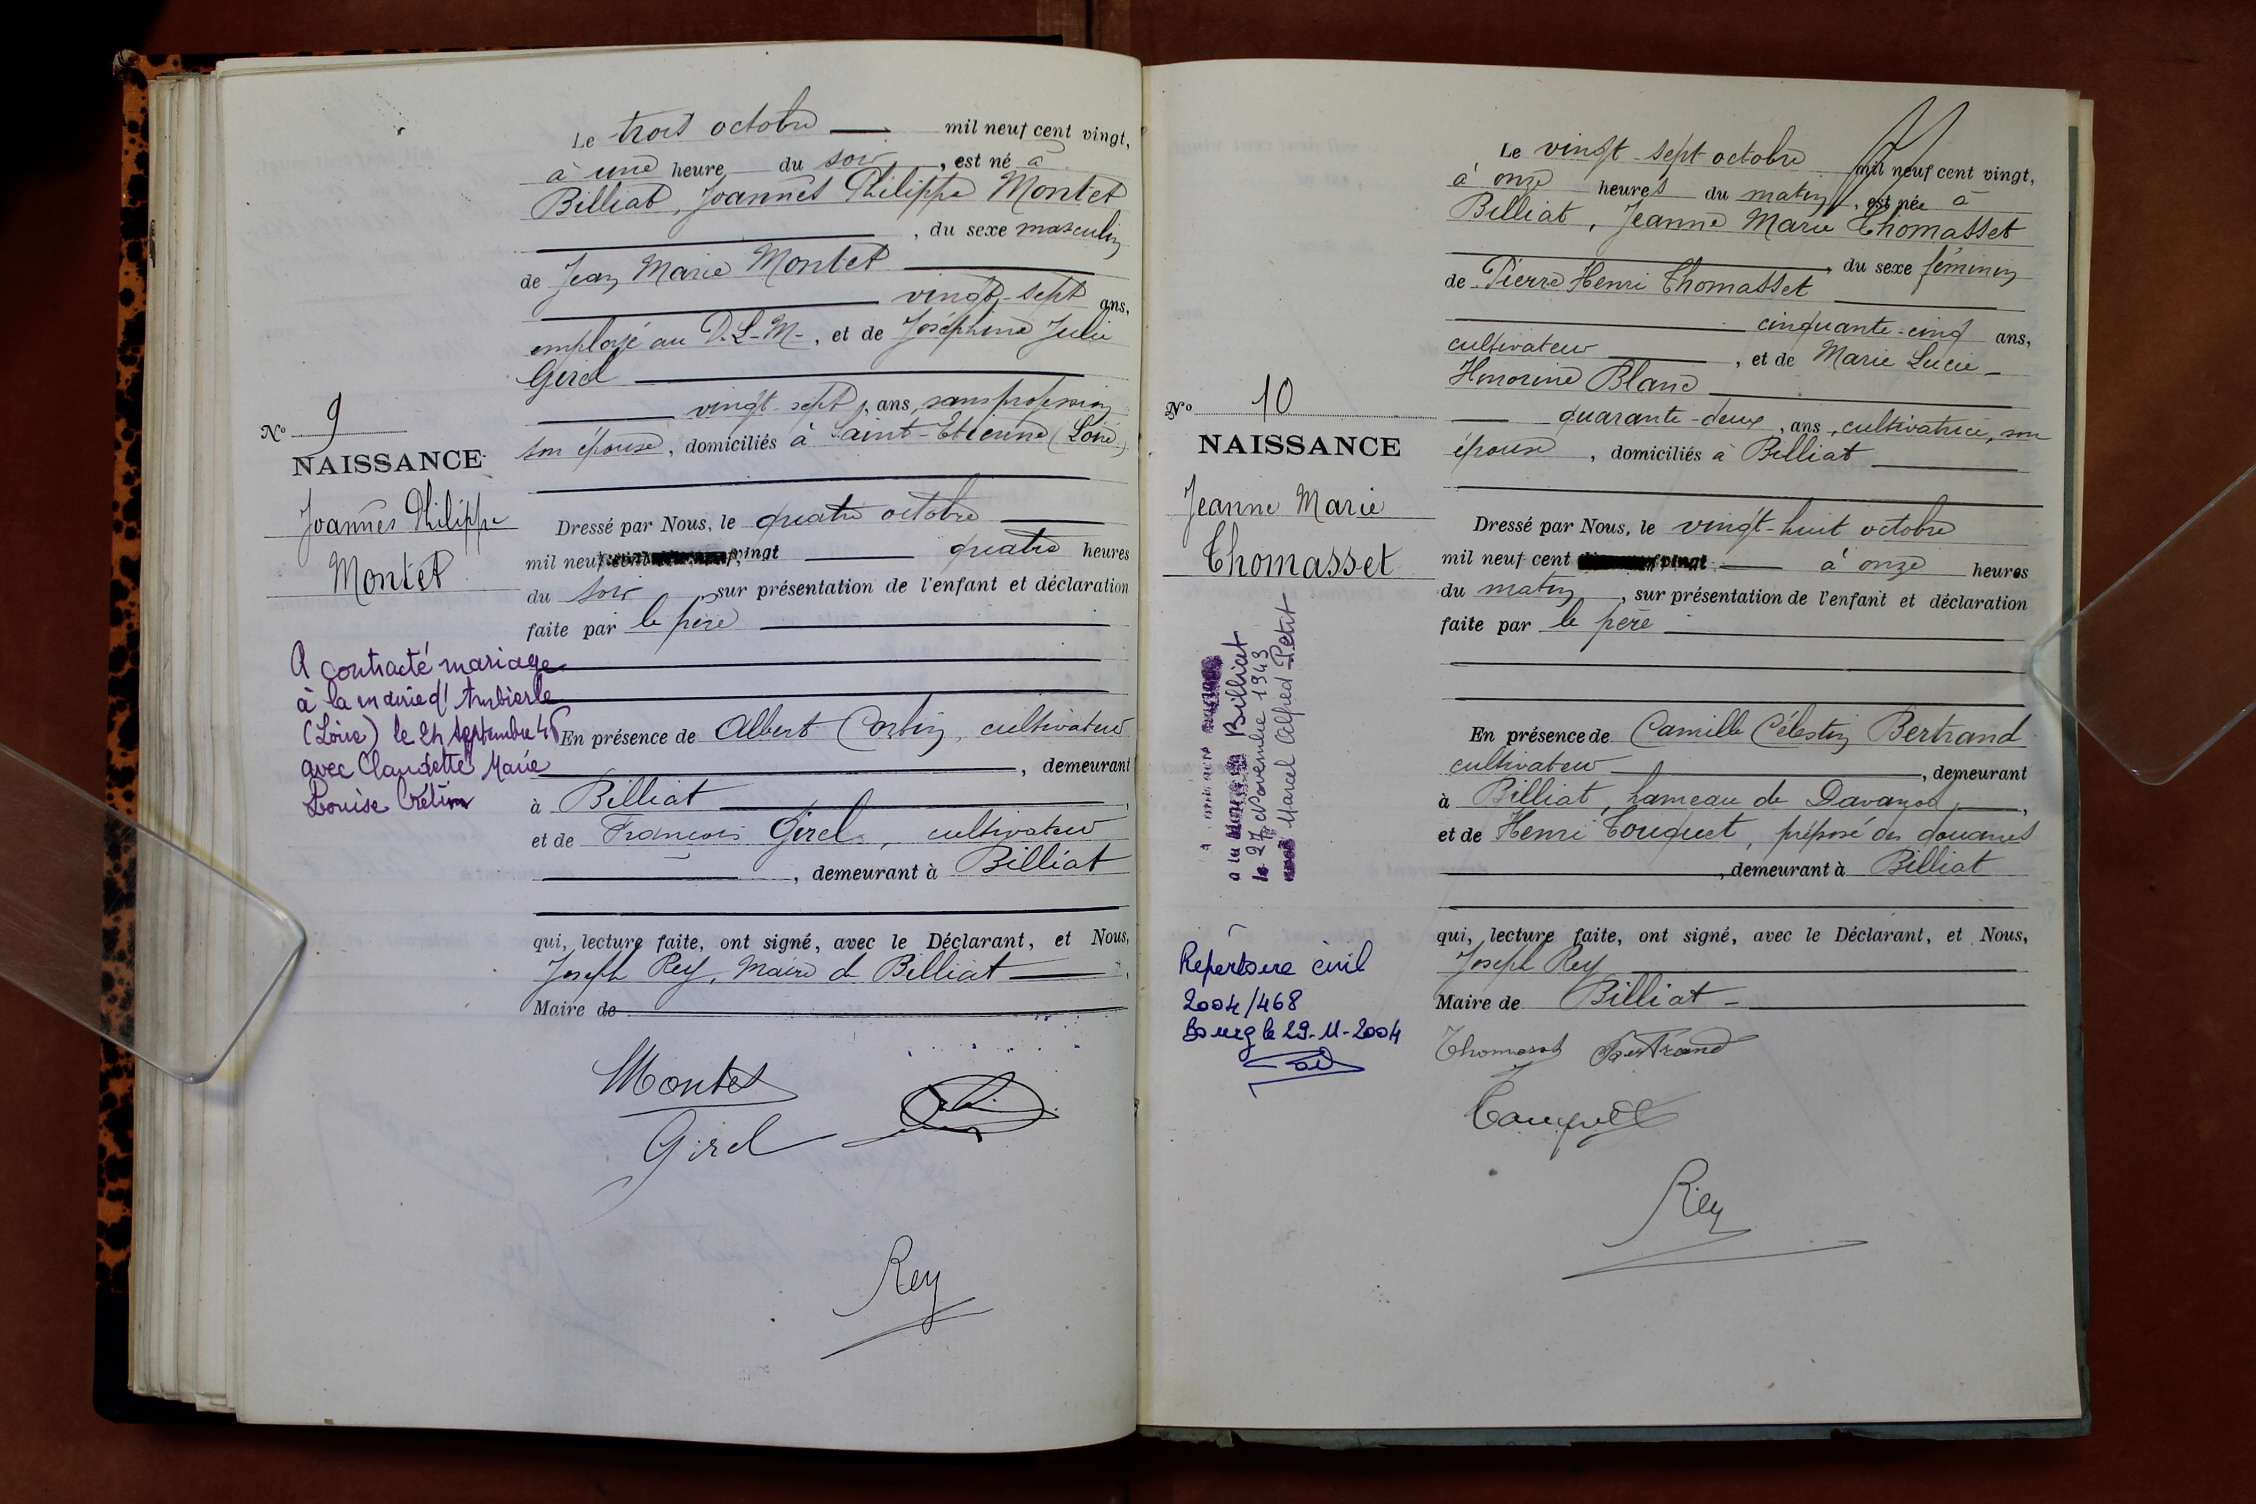 Le trois octobre mil neuf cent vingt,
à une heure du soir, est né à
Billiat, Joannès Philippe Montet
, du sexe masculin
de Jean Marie Montet
vingt-sept ans,
employé au P-L-M-, et de Joséphine Julie
Girel
vingt-sept, ans, sans profession
son épouse, domiciliés à Saint-Etienne (Loire)
N° 9
NAISSANCE
Joannès Philippe
Montet
Dressé par Nous, le quatre octobre
mil neuf cent vingt quatre heures
du soir, sur présentation de l'enfant et déclaration
faite par le père
A contracté mariage
à la mairie d'Ambierle
(Loire) le 24 septembre 46
avec Claudette Marie
Louise
En présence de Albert Corbin, cultivateur
, demeurant
à Billiat,
et de François Girel, cultivateur
, demeurant à Billiat
qui, lecture faite, ont signé, avec le Déclarant, et Nous,
Joseph Rey, Maire de Billiat
Maire de
Montet
Girel
Rey
Le vingt-sept octobre mil neuf cent vingt,
à onze heures du matin, est née à
Billiat, Jeanne Marie Thomasset
, du sexe féminin
de Pierre Henri Thomasset
cinquante-cinq ans,
cultivateur, et de Marie Lucie
Honorine Blanc
quarante-deux, ans, cultivatrice, son
épouse, domiciliés à Billiat
N° 10
NAISSANCE
Jeanne Marie
Thomasset
Dressé par Nous, le vingt-huit octobre
mil neuf cent vingt à onze heures
du matin, sur présentation de l'enfant et déclaration
faite par le père
à la Billiat
le 27 Novembre 1943
Marcel Alfred Petit
En présence de Camille Célestin Bertrand
cultivateur, demeurant
à Billiat, hameau de Davanod,
et de Henri Touquet, préposé des douanes
, demeurant à Billiat
qui, lecture faite, ont signé, avec le Déclarant, et Nous,
Joseph Rey
Maire de Billiat
Répertoire civil
2004/468
Bourg le 29-11-2004
Thomasset Bertrand
Touquet
Rey